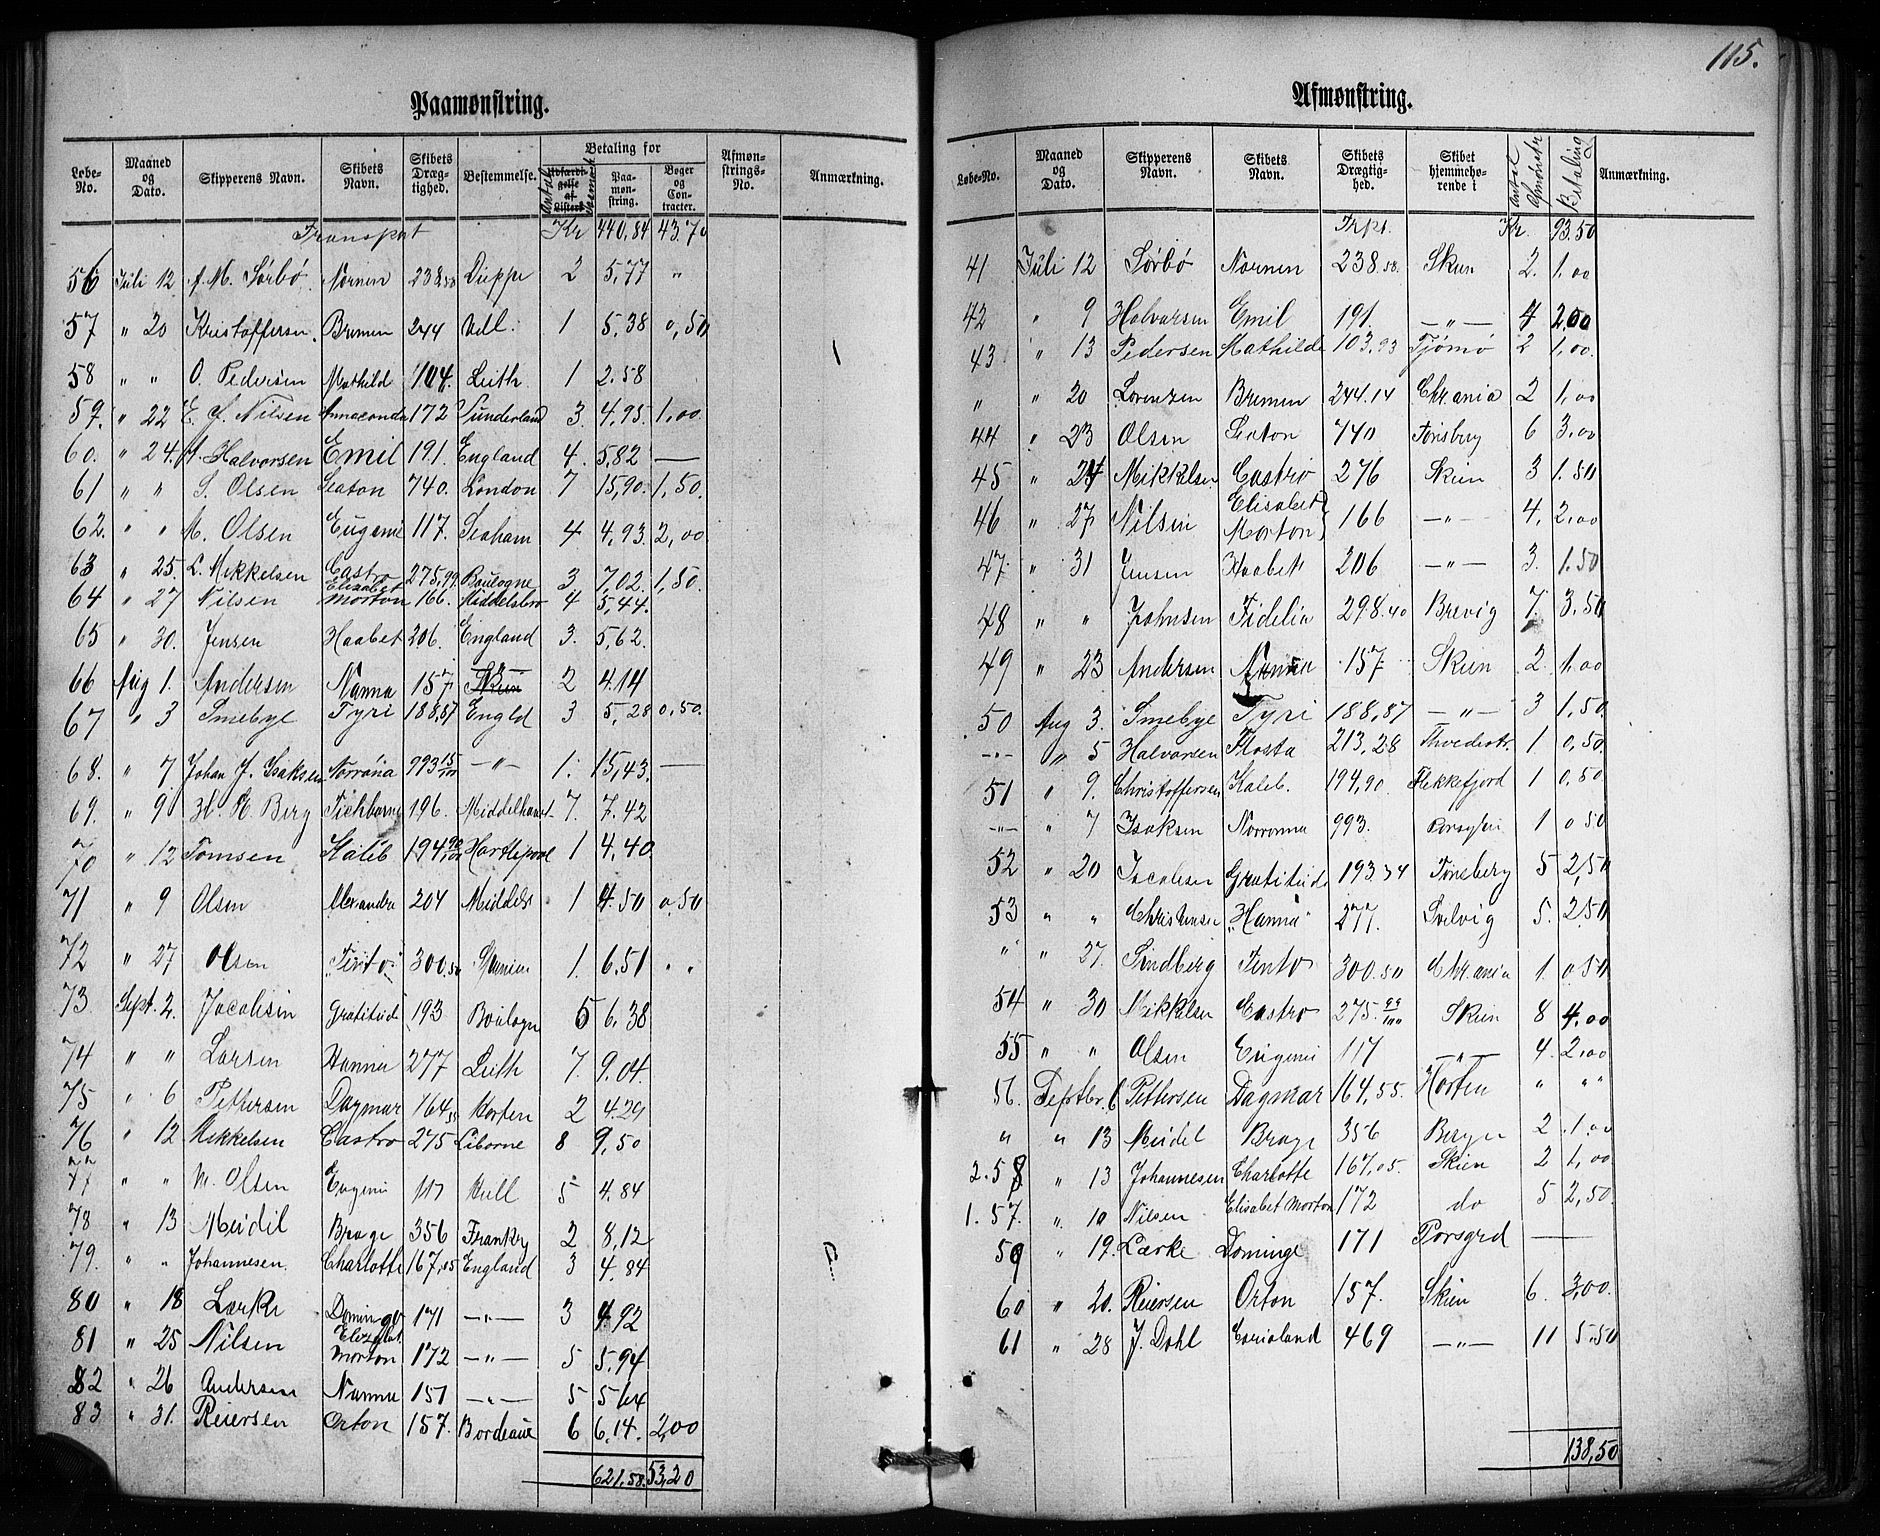 115.
Paamønstring.
Løbe-No. Maaned og Dato. Skipperens Navn. Skibets Navn. Skibets Drægtighed. Bestemmelse. Betaling for Antal Paamønstring. Bøger og Contracter. Afmønstrings-No. Anmærkning.
Transport Kr 440,84 43.70
56 Juli 12 A. M. Sørbø Nornen 238.58 Dieppe 2 5,77 "
57 " 20 Kristoffersen Bremen 244 Hull. 1 5.38 0,50
58 " " O. Pedersen Mathild 104. Leith 1 2.58
59. " 22 E. A. Nilsen Annaconda 172 Sunderland 3. 4.95. 1,00
60. " 24. A. Halvorsen Emil 191. England 4. 5,82 —
61 " " S. Olsen Seaton 740. London 7 15,90. 1,50.
62. " " M. Olsen Eugenie 117. Seaham 4 4,93. 2,00
63 " 25. L. Mikkelsen Castro 275,99 Boulogne 3 7,02. 1,50.
64 " 27 Nilsen Elisabet Morton 166. Middelsbro 4 5,44.
65 " 30. Jensen Haabet 206. England 3. 5,62.
66 Aug 1. Andersen Nanna 157 —"— 2 4.14
67 " 3 Smebye Tyri 188,87 Engld 3 5,28 0,50.
68. " 7 Johan J. Isaksen Norrøna 993 15/100 —"— 1. 15,43. —
69. " 9 H. H. Berg Tichborne 196. Middelhavet 7. 7.42
70 " 12 Tomsen Kaleb 194,90 Hartlepool 1 4.40.
71 " 9 Olsen Alexandra 204 Middelsb 1 4.50 0,50
72 " 27 Olsen Tento 300.50 Spanien 1. 6.51 " "
73. Sept. 2. Jacobsen Gratitude 193 Boulogn 5 6.38
74 " " Larsen Hanna 277 Leith 7. 9.04.
75 " 6 Pettersen Dagmar 164,55 Horten 2 4.29
76 " 12 Mikkelsen Castro 275 Liborne 8 9,50
77 " " M. Olsen Eugenie 117 Hull 5 4.84
78 " 13 Meidel Brage 356 Frankr 2 8,12
79. " " Johannesen. Charlotte 167,05 England 3 4.84
80 " 18 Lærke Domingo 171 —"— 3 4,92
81 " 25 Nilsen Elizabet Morton 172 —"— 5 5.94
82 " 26 Andersen Nanna 157 —"— 5 5,64
83 " 31. Reiersen Orton 157. Bordeaux 6 6.14. 2,00
621.58. 53,20
Afmønstring.
Løbe-No. Maaned og Dato. Skipperens Navn. Skibets Navn. Skibets Drægtighed. Skibet hjemmehørende i Antal Afmønstr Betaling Anmærkning.
Trpt. Kr. 93.50
41 Juli 12 Sørbø Nornen 238.58. Skien 2. 1.00
42 " 9 Halvorsen Emil 191. —"— 4 2,00
43 " 13 Pedersen Mathilde 103,93 Tjømø 2 1,00.
" " 20 Lorenzen Bremen 244.14 Chr.ania 2 1,00
44 " 23 Olsen Seaton 740 Tønsberg 6 3.00
45 " 24 Mikkelsen Castro 276 Skien 3 1.50
46 " 27 Nilsen Elisabet Morton 166 —"— 4. 2,00
47. " 31 Jensen Haabet 206 —"— 3. 1.50
48 " " Johnsen Fidelia 298.40 Brevig 7. 3,50
49 " 23 Andersen Nanna 157 Skien 2. 1.00
50 Aug 3. Smebye Tyri 188,87 —"— 3 1,50.
—"— " 5 Halvorsen Flosta 213,28 Thvedestr. 1 0,50.
51 " 9. Christoffersen Kaleb. 194,90. Flekkefjord 1 0,50
—"— " 7 Isaksen Norrønna 993. Porsgru 1 0 50
52 " 20 Jacobsen Gratitude 193.34 Tønsberg 5 2,50
53 " " Christensen "Hanna" 277. Svelvig 5. 2,50
" " 27. Sindberg Tento 300.50 Chr.ania 1. 0.50
54 " 30 Mikkelsen Castro 275.99/100 Skien 8 4.00
55 " " Olsen Eugenie 117 —"— 4. 2.00
56. Septbr. 6 Pettersen Dagmar 164,55. Horten " " "
" " 13 Meidel Brage 356 Bergen 2 1.00
2.58 " 13 Johannesen Charlotte 167,05. Skien 2 1,00
1.57. " 10 Nilsen Elisabet Morton 172 do 5 2,50.
59 " 19. Lærke Dominge 171 Porsgrd —
60 " 20. Reiersen Orton 157. Skien 6. 3,00.
61 " 28 J. Dahl 469 —"— 11 5.50
138,50